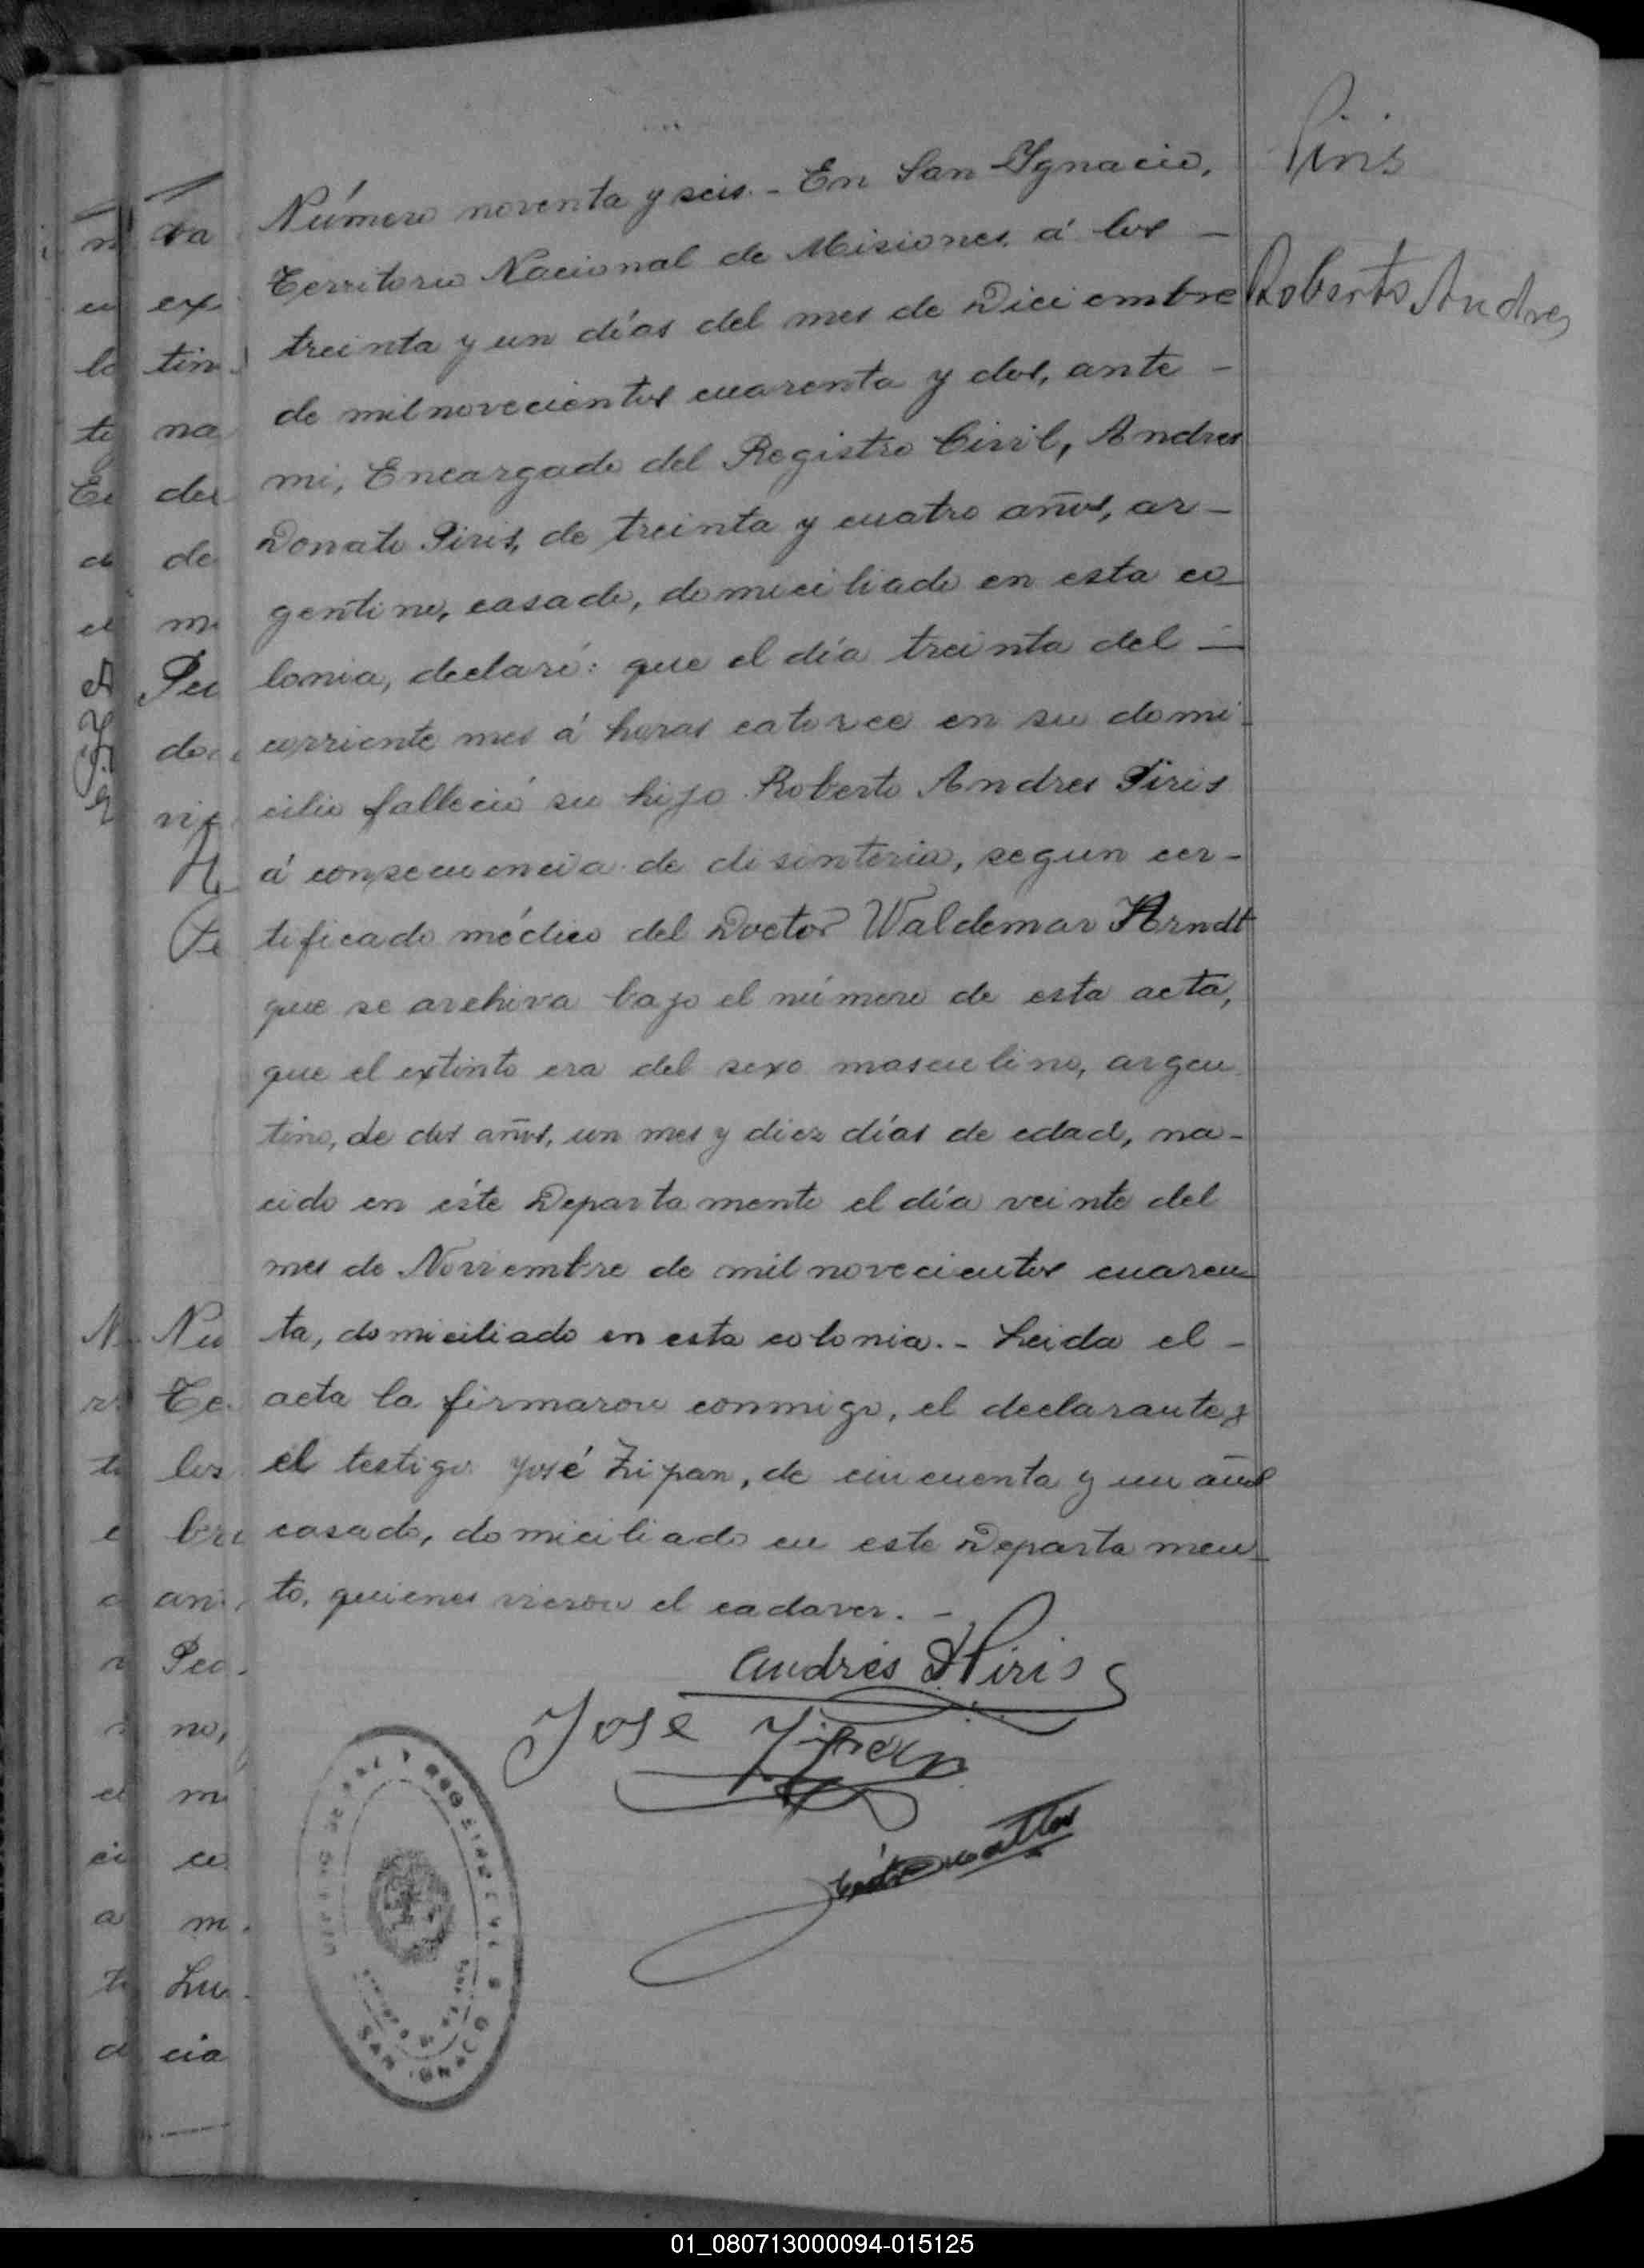 Piris
Roberto Andres
Número noventa y seis.- En San Ygnacio,
Territorio Nacional de Misiones á los -
treinta y un días del mes de Diciembre
de mil novecientos cuarenta y dos, ante -
mi, Encargado del Registro Civil, Andres
Donato Piris, de treinta y cuatro años, ar-
gentino, casado, domiciliado en esta co-
lonia, declaró: que el día treinta del -
corriente mes á horas catorce en su domi-
cilio falleció su hijo Roberto Andres Piris
á consecuencia de disinteria, segun cer-
tificado médico del Doctor Waldemar Arndt
que se archiva bajo el número de esta acta,
que el extinto era del sexo masculino, argen
tino, de dos años, un mes y diez días de edad, na-
cido en éste Departamento el día veinte del
mes de Noviembre de mil novecientos cuaren-
ta, domiciliado en esta colonia.- Leida el -
acta la firmaron conmigo, el declarante y
el testigo José Zipan, de cincuenta y un años
casado, domiciliado en este Departamen-
to, quienes vieron el cadaver. -
Andrés D Piris
José Zipan
SAN IGNACIO
01_080713000094-015125